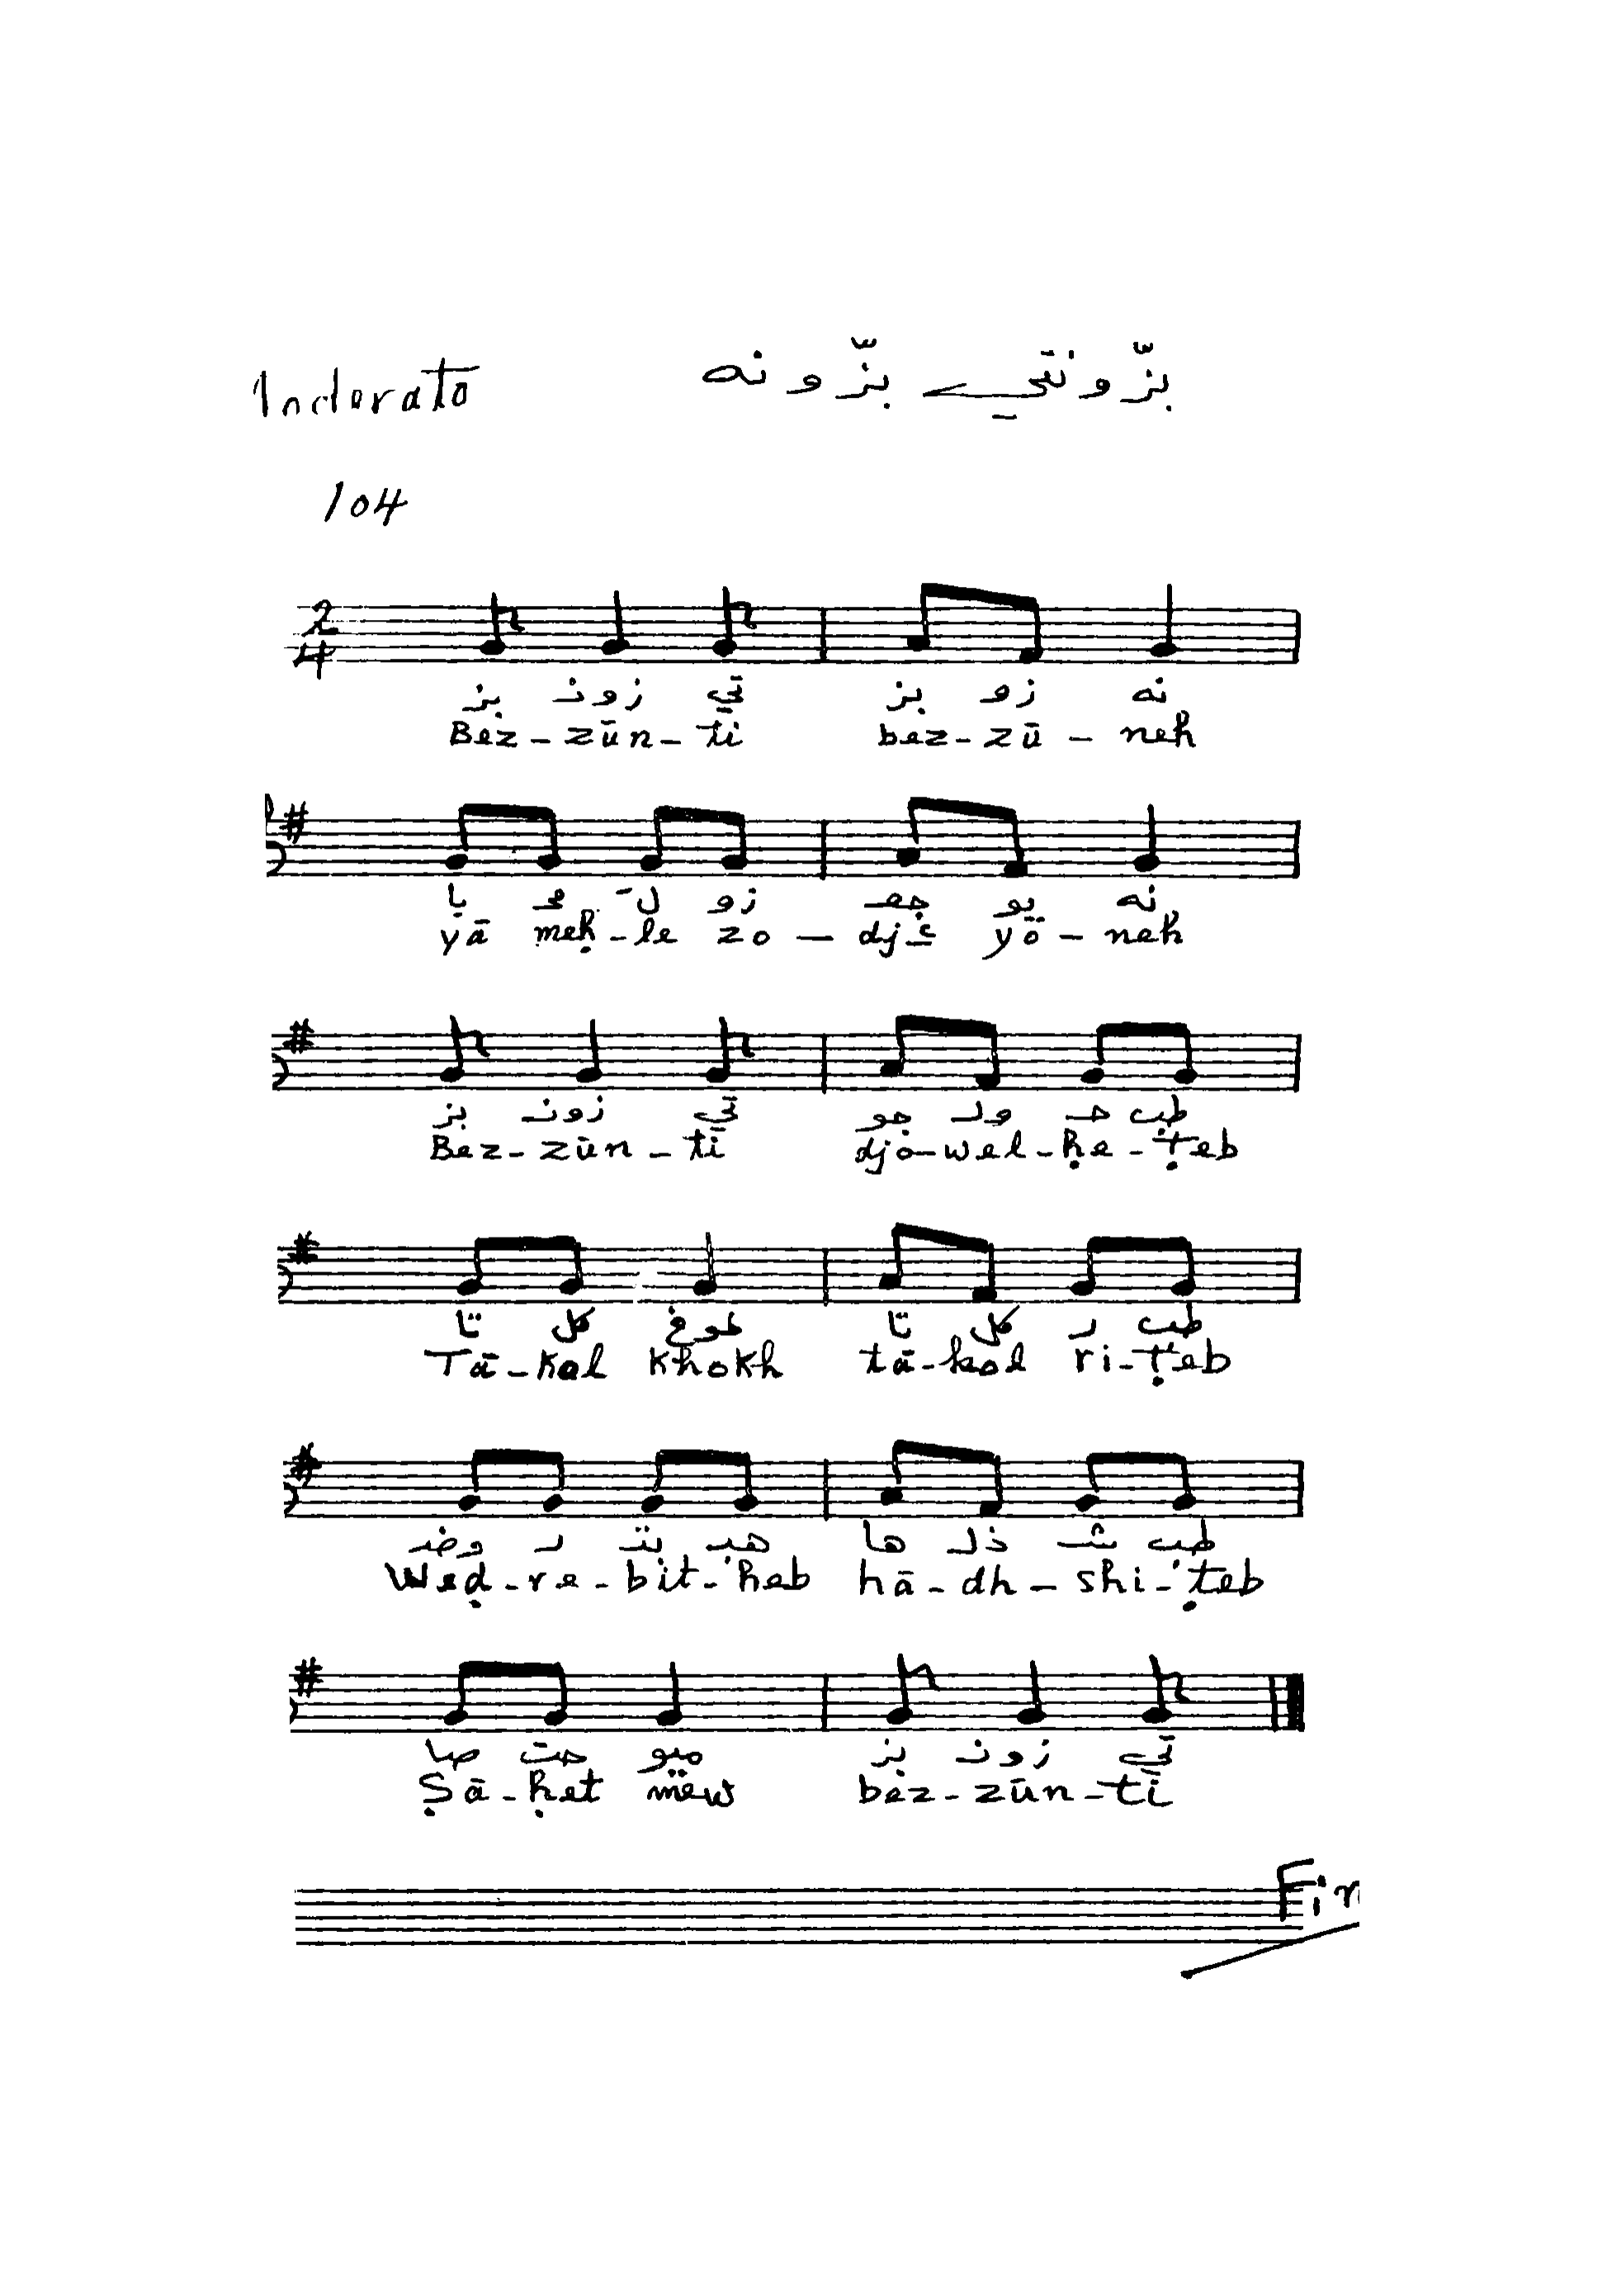 بزّونتي بزّونه
Inderato
104
2
4
بز زونـ تي بز زو نه
Bez - zūn - ti bez - zū - neh
يا مح لَ زو جعـ يو نه
yā meḥ - le zo - djع yō - neh
بز زونـ تي جو ولـ حـ طب
Bez - zūn - tī djo - wel - ḥe - ṭeb
تا كل خوخ تا كل ر طب
Tā - kol Khokh tā - kol ri - ṭeb
وضـ ر بتـ هب ها ذلـ شـ طب
Weḍ - re - bit - heb hā - dh - shi - ṭeb
صا حت ميو بز زونـ تي
Ṣā - ḥet mew bez - zūn - ti
Fin